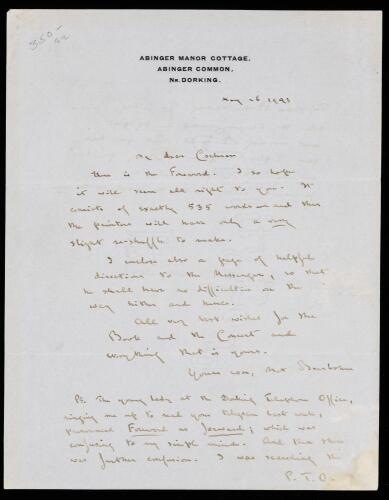 ABINGER MANOR COTTAGE,
ABINGER COMMON,
NR. DORKING.
My dear Cochran
Here is the Foreword. I so hope
it will seem all right to you. It
consists of exactly 535 words and thus
the printers will have only a very
slight re-shuffle to make.
I enclose also a page of helpful
directions to the Messenger, so that
he shall have no difficulties on the
way hither and hence.
All very best wishes for the
Book and the Concert and
everything that is yours.
Yours ever, Max Beerbohm
PS. The young lady at the Dorking Telephone Office,
ringing me up to read your telegram last week,
pronounced Foreword as Forward; which was
confusing to my simple mind. And then there
was further confusion. I was searching the
P. T. O.